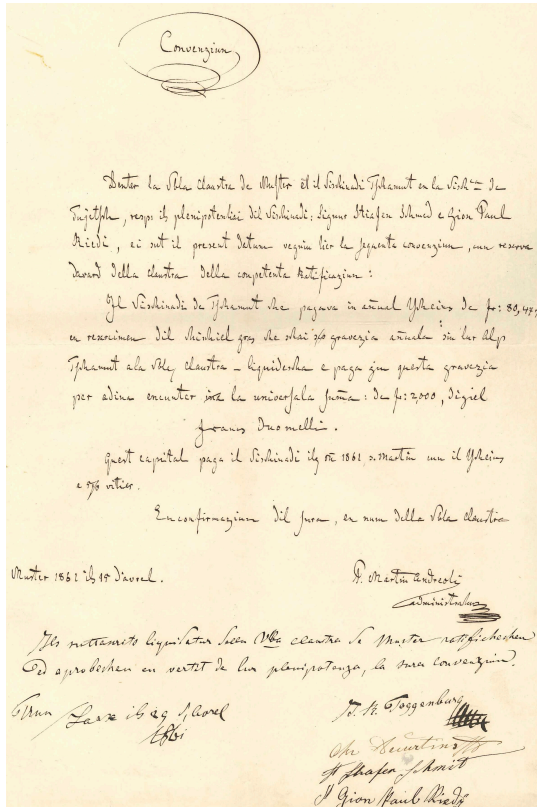 Convenziun
Denter la Vbla claustra de Muster et il Vischinadi Tschamut en la Visch.na de
Tujetsch, resp. ils plenipotenziai dil Vischinadi: Signur Stiafen Schmed e Gion Paul
Riedi, ei sut il present datum vegniu lier la sequenta convenziun, cun reserva
davard della claustra della competenta Ratificaziun:
Il Vischinadi de Tschamut che pagava in annual Tscheins de fr: 80,47,
en reserimen dil chischiel gras che schai gravezia annuala sin lur Alp
Tschamut a la Vbla claustra – liquidescha e paga giu questa gravezia
per adina encunter la universala summa: de fr: 2,000, digiel
francs Duamelli.
Quest capital paga il Vischinadi ilg 1861 s. Martin cun il Tscheins
e vitier.
En confirmaziun dil sura, en num della Vbla claustra
Muster 1861 ils 15 d'avrel.
P. Martin Andreoli
administratur
Ils suttascrits liquidatur della Vbla claustra de Muster ratificheschen
ed aprobeschen en vertet de lur plenipotenza, la sura convenziun.
Trun
Laax ils 29 d'Avrel
J. R. Toggenburg
Chr Decurtins
Stiafen Schmit
Gion Paul Riedi